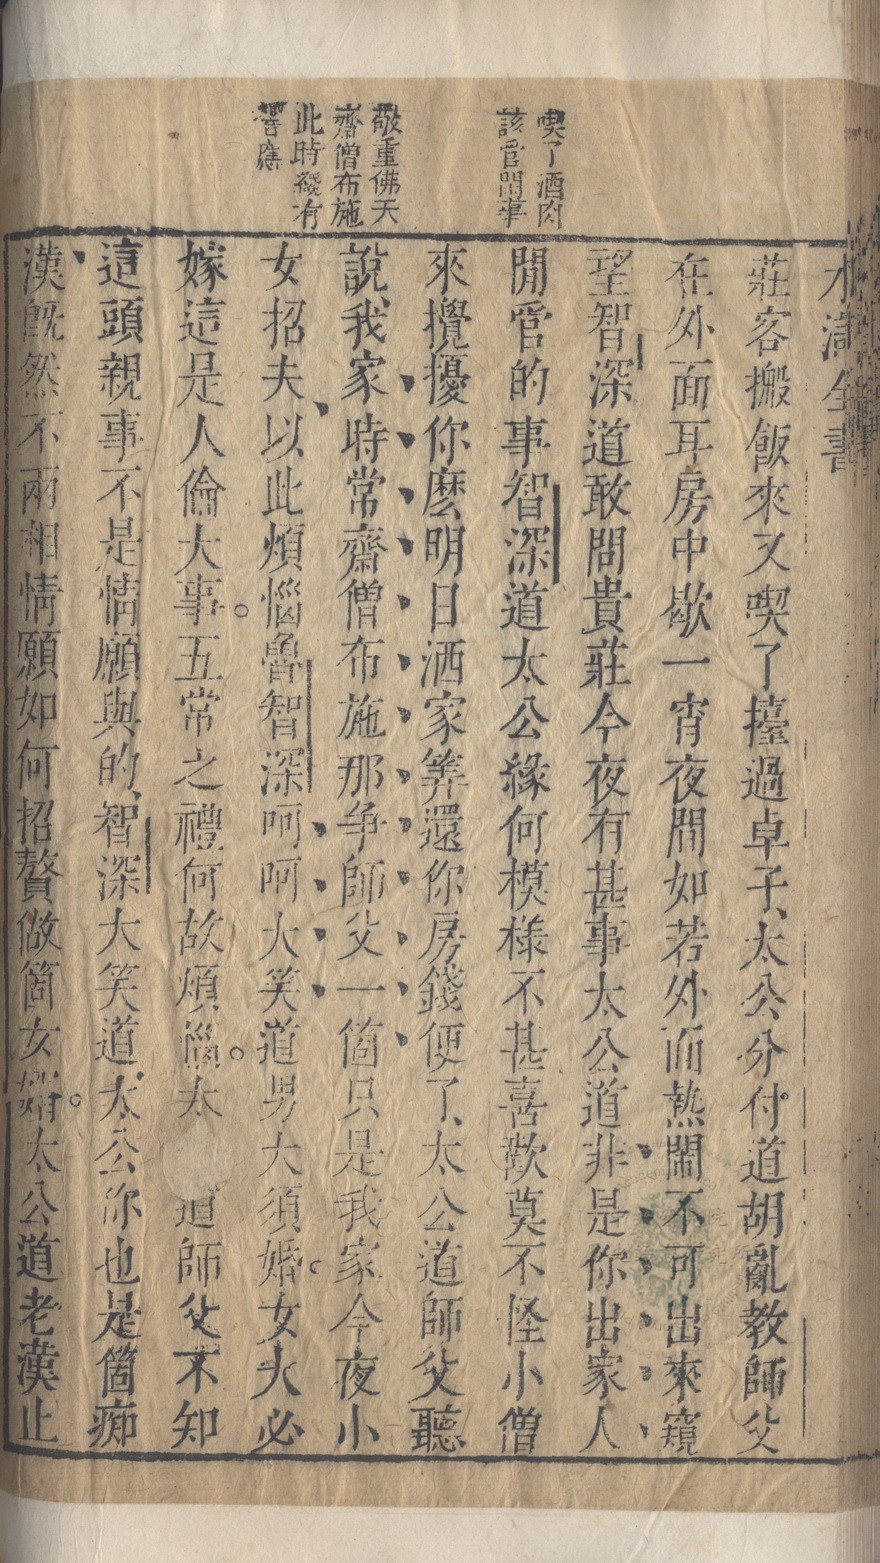 喫了酒肉
該管閒事
敬重佛天
齋僧布施
此時纔有
響應
水滸全書
莊客搬飯來又喫了擡過卓子太公分付道胡亂教師父
在外面耳房中歇一宵夜間如若外面熱鬧不可出來窺
望智深道敢問貴莊今夜有甚事太公道非是你出家人
閒管的事智深道太公緣何模樣不甚喜歡莫不怪小僧
來攪擾你麽明日洒家筭還你房錢便了太公道師父聽
說我家時常齋僧布施那争師父一箇只是我家今夜小
女招夫以此煩惱魯智深呵呵大笑道男大須婚女大必
嫁這是人倫大事五常之禮何故煩惱太道師父不知
這頭親事不是情願與的智深大笑道太公你也是箇痴
漢旣然不兩相情願如何招贅做箇女壻太公道老漢止